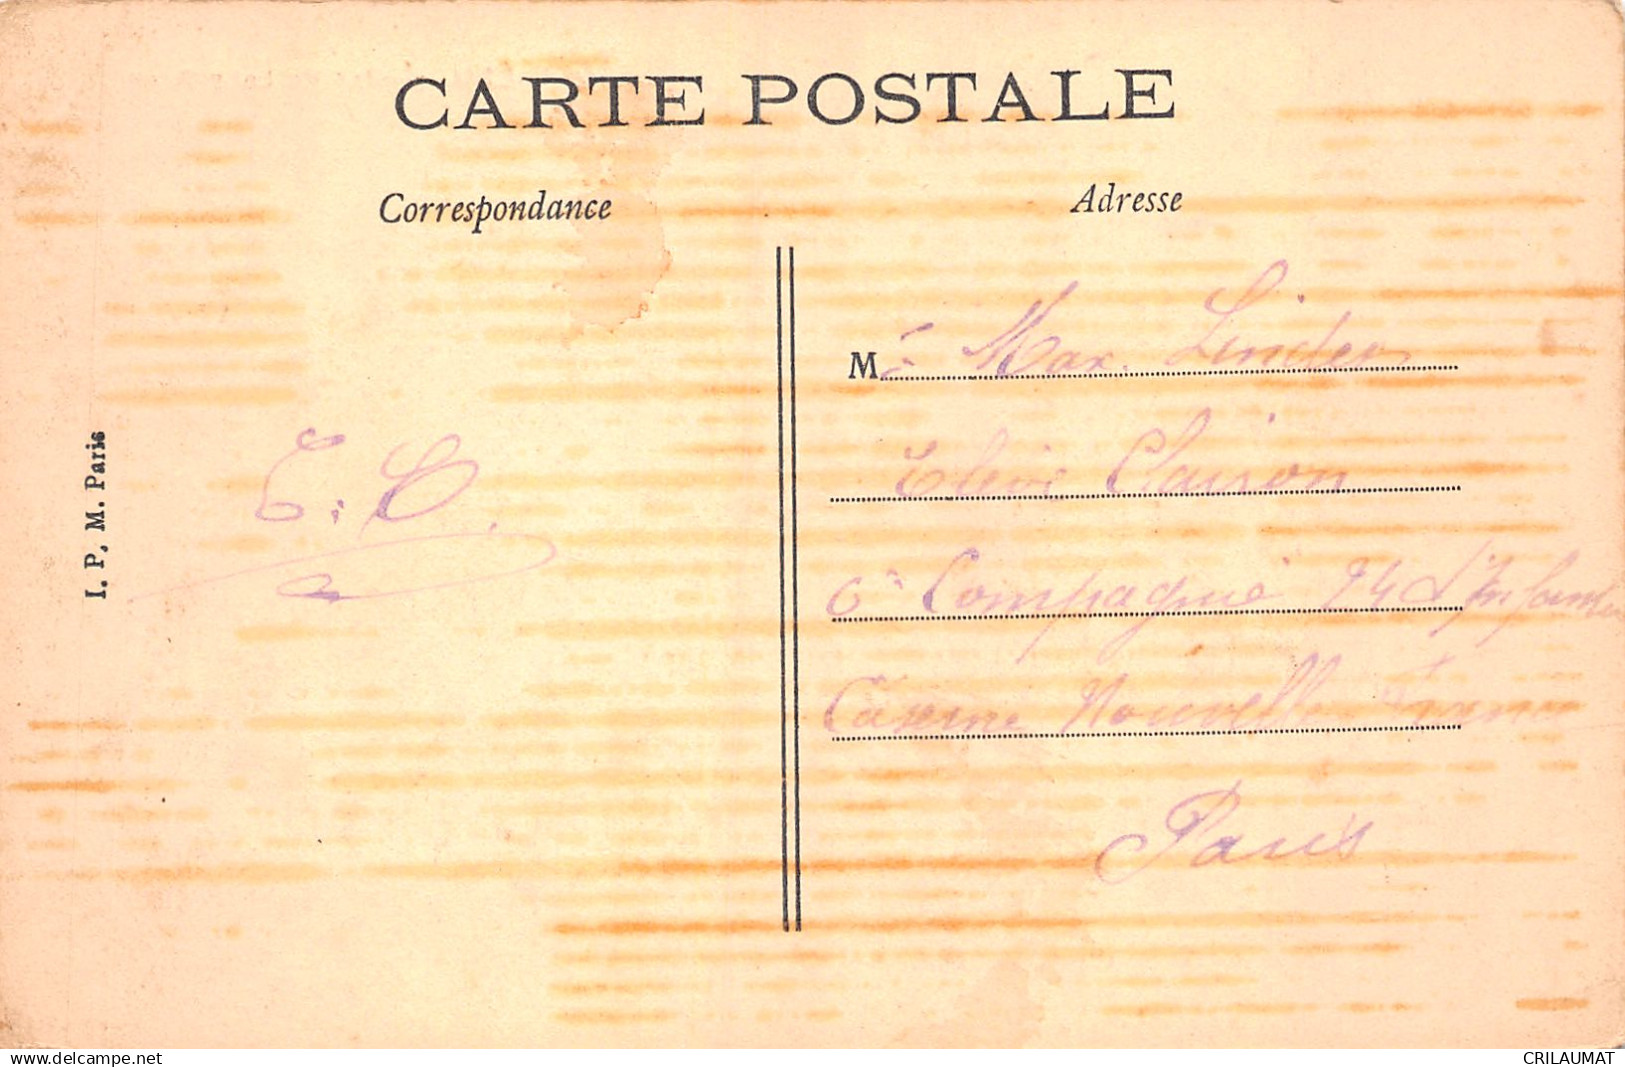 CARTE POSTALE
Correspondance
Adresse
I. P. M. Paris
M. à Max. Linder
Eleve Clairon
6e Compagnie 24 d'Infanterie
Caserne Nouvelle France
Paris
www.delcampe.net
CRILAUMAT